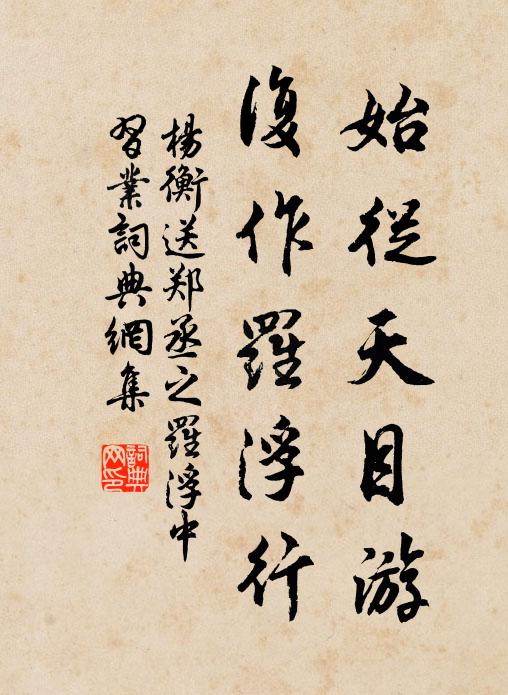 始從天目游
復作羅浮行
楊衡送郑丞之羅浮中
習業詞典網集
詞典
网印